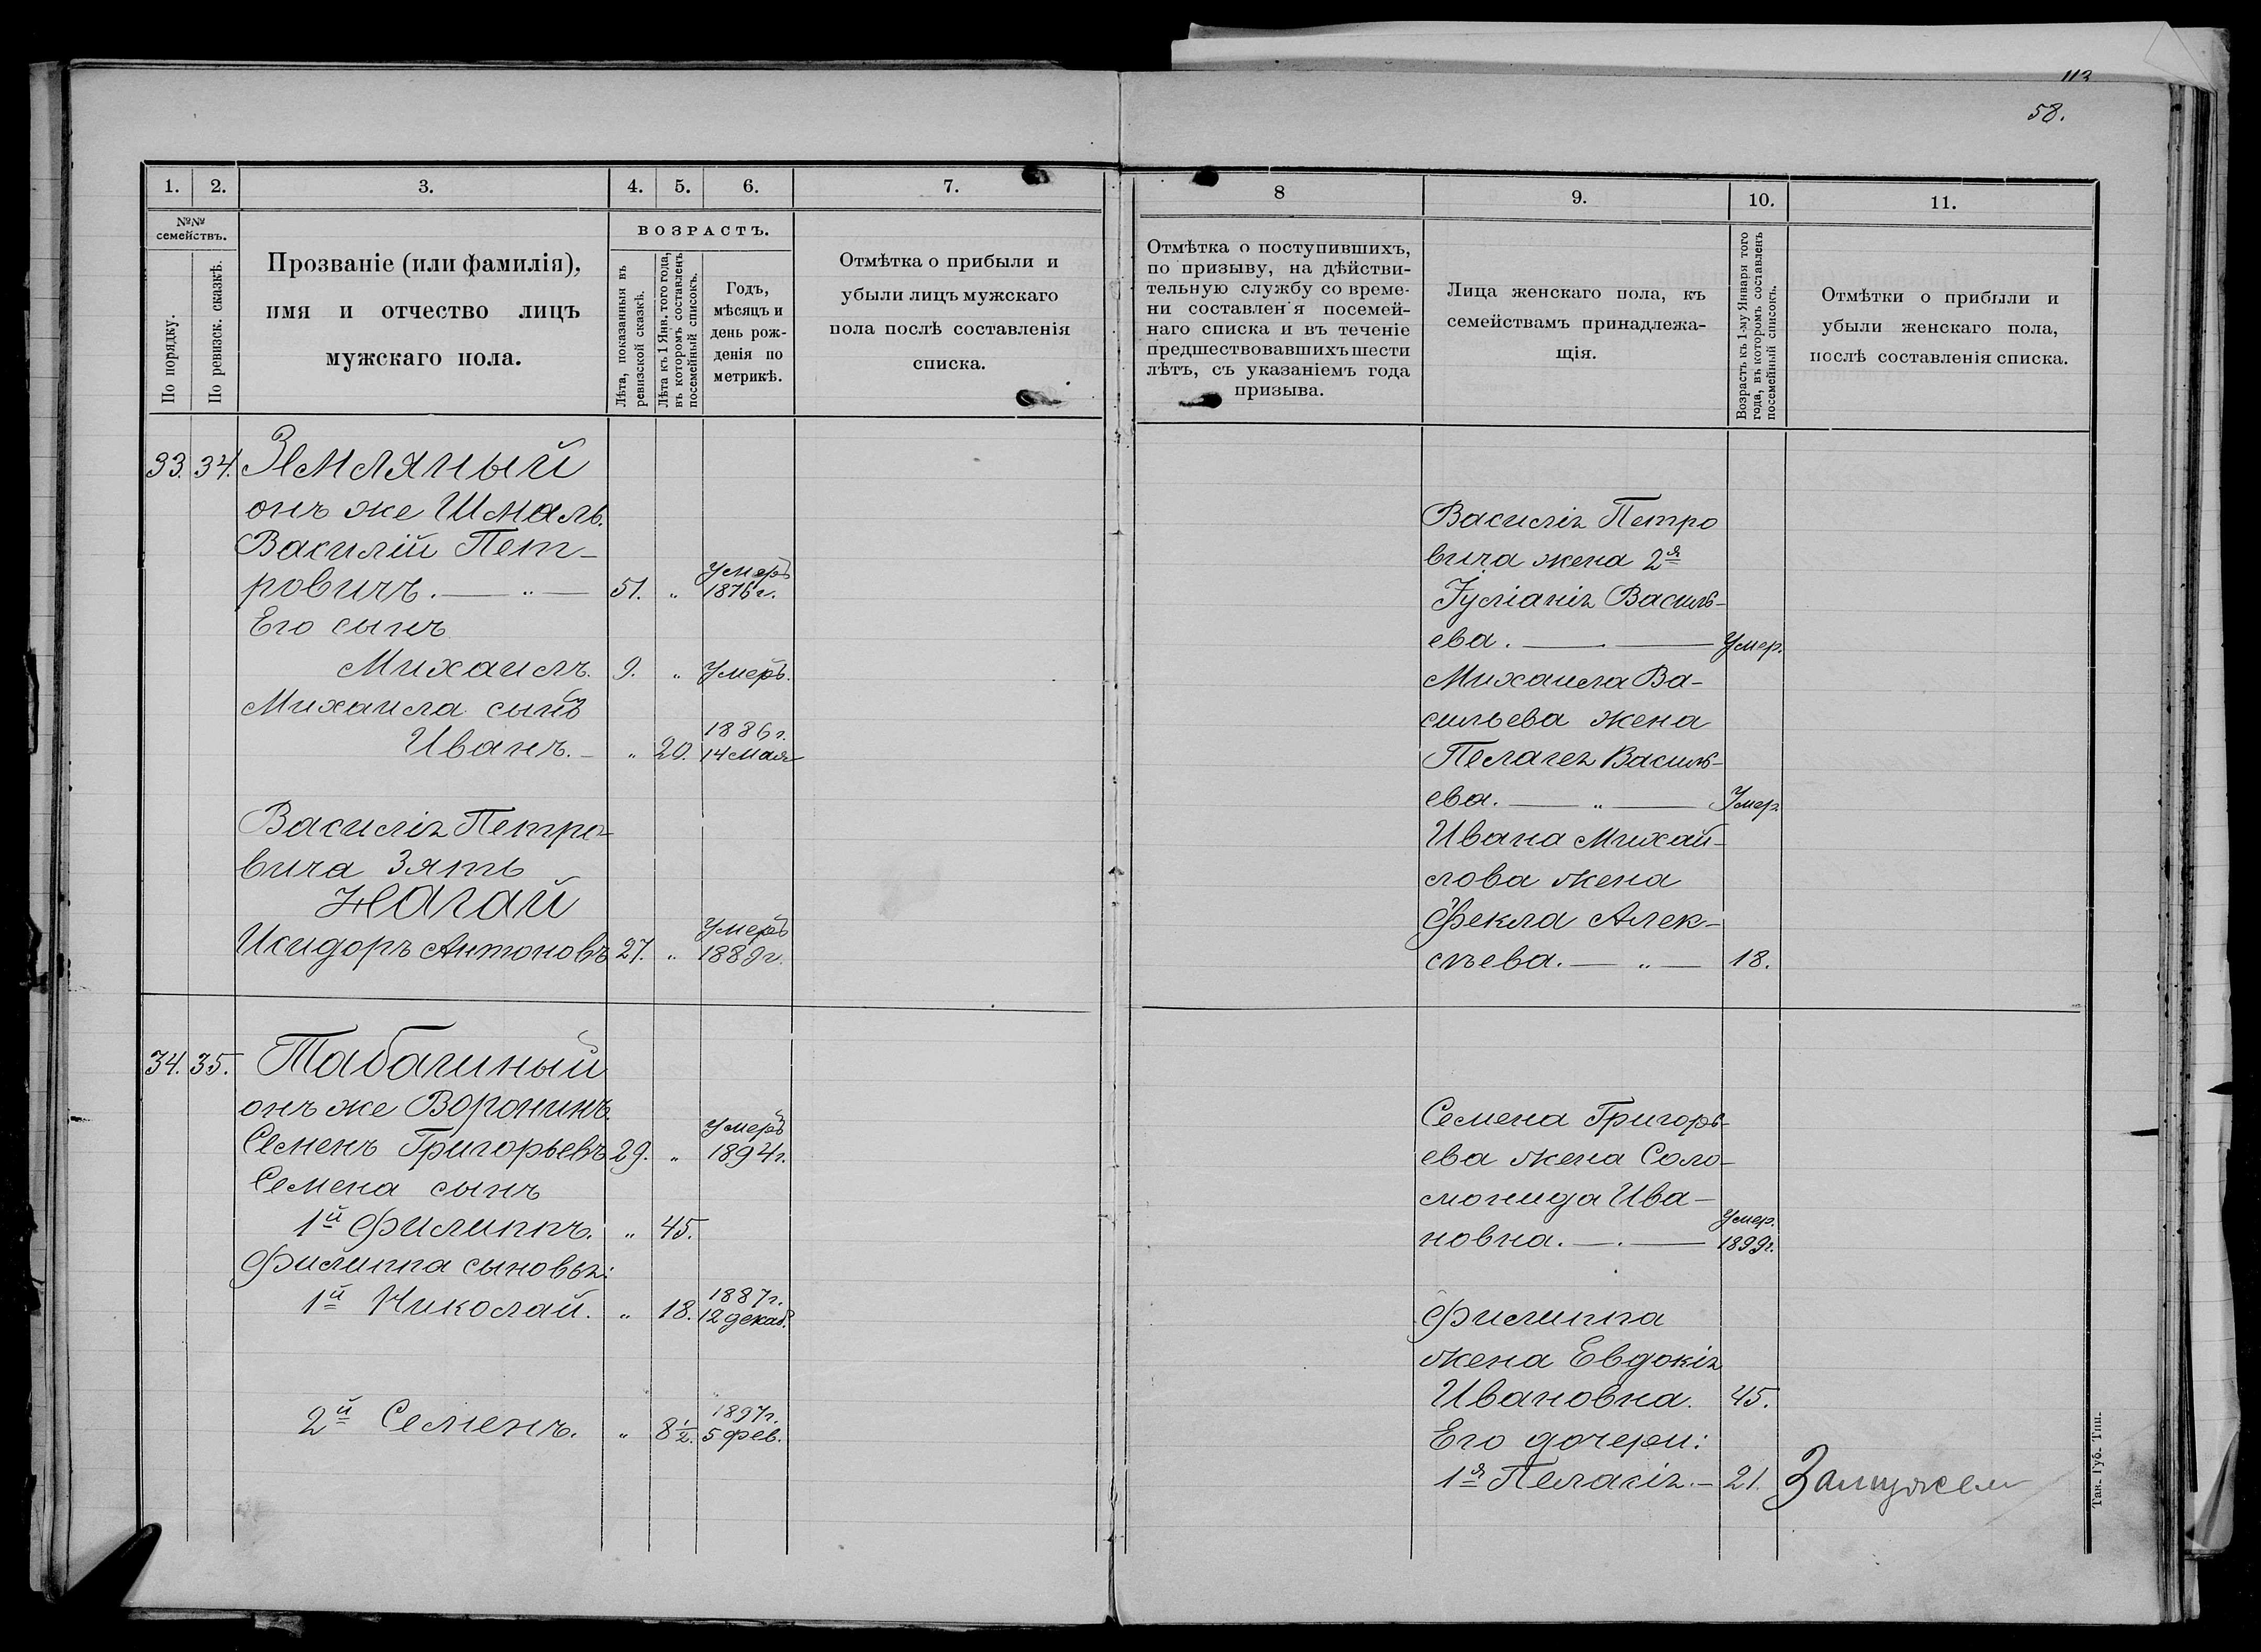 113
58.
1. 2. 3. 4. 5. 6. 7.
№№ семействъ.
По порядку.
По ревизск. сказкѣ.
Прозваніе (или фамилія),
имя и отчество лицъ
мужскаго пола.
ВОЗРАСТЪ.
Лѣта, показанныя въ
ревизской сказкѣ.
Лѣта къ 1 Янв. того года,
въ которомъ составленъ
посемейный списокъ.
Годъ,
мѣсяцъ и
день рож-
денія по
метрикѣ.
Отмѣтка о прибыли и
убыли лицъ мужскаго
пола послѣ составленія
списка.
33. 34. Земляный
онъ же Шмаль.
Василій Пет-
Умеръ
ровичъ. — „ — 51. „ 1876 г.
Его сынъ
Михаилъ. 9. „ Умеръ.
Михаила сынъ
1886 г.
Иванъ. — „ 20. 14 Мая
Василія Петро-
вича Зять
Нагай
Умеръ
Исидоръ Антоновъ 27. „ 1889 г.
34. 35. Табачный
онъ же Воронинъ.
Умеръ
Семенъ Григорьевъ 29. „ 1894 г.
Семена сынъ
1й Филиппъ. „ 45.
Филиппа сыновья:
1887 г.
1й Николай. „ 18. 12 декаб.
1897 г.
2й Семенъ. „ 8½. 5 фев.
8 9. 10. 11.
Отмѣтка о поступившихъ,
по призыву, на дѣйстви-
тельную службу со време-
ни составлен'я посемей-
наго списка и въ теченіе
предшествовавшихъ шести
лѣтъ, съ указаніемъ года
призыва.
Лица женскаго пола, къ
семействамъ принадлежа-
щія.
Возрастъ къ 1-му Января того
года, въ которомъ составленъ
посемейный списокъ.
Отмѣтки о прибыли и
убыли женскаго пола,
послѣ составленія списка.
Василія Петро
вича жена 2я
Іуліанія Василь-
ева. — — Умер.
Михаила Ва-
сильева жена
Пелагея Василь-
ева. — „ — Умер
Ивана Михай-
лова жена
Фекла Алек-
сѣева. — „ — 18.
Семена Григорь-
ева жена Соло-
монида Ива-
Умер.
новна. — . — 1899 г.
Филиппа
жена Евдокія
Ивановна. 45.
Его дочери:
1я Пелагія. — 21. Замужем
Тав. Губ. Тип.